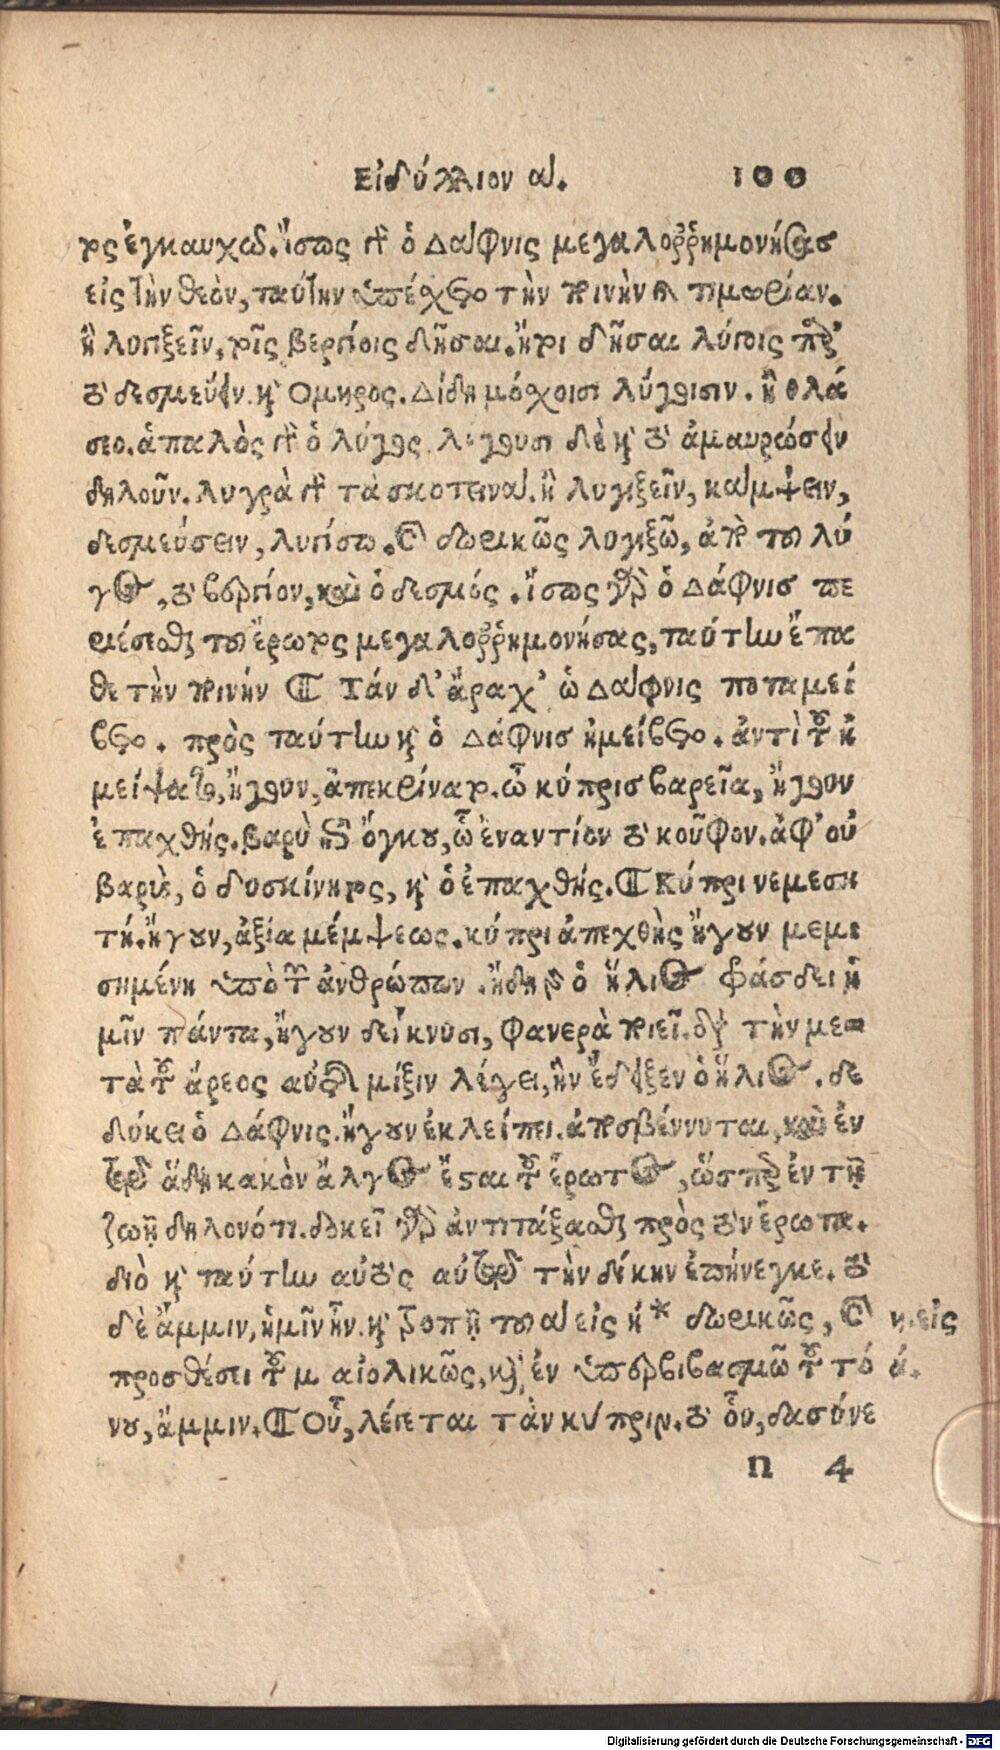 Εἰδύλλιον α. 100
τος ἐγκαυχᾶς. ἴσως γὰρ ὁ Δάφνις μεγαλοῤῥημονήσας
εἰς τὴν θεὸν, ταύτην ὑπέσχετο τὴν ποινὴν καὶ τιμωρίαν.
ἢ λυγιξεῖν, τοῖς δῆσαι. ἤτοι δῆσαι λύγοις
τὸ δεσμεύειν. καὶ Ὅμηρος. Δίδη μόσχοισι λύγοισιν. ἢ θλά
σειν. ἁπαλὸς γὰρ ὁ λύγος. λέγουσι δὲ καὶ τὸ ἀμαυρώσειν
δηλοῦν. λυγρὰ γὰρ τὰ σκοτεινά. ἢ λυγιξεῖν, κάμψειν,
δεσμεύσειν, λυγίσω. καὶ δωρικῶς λυγιξῶ, ἀπὸ τοῦ λύ
γος, τὸ καὶ ὁ δεσμός. ἴσως γὰρ ὁ Δάφνισ πε
ριέσεσθαι τοῦ ἔρωτος μεγαλοῤῥημονήσας, ταύτην ἔπα
θε τὴν ποινήν ¶ Τάν δ' ἄραχ' ὡ Δάφνις ποταμεί
βετο. πρὸς ταύτην καὶ ὁ Δάφνισ ἠμείβετο. ἀντὶ τοῦ ἠ
μείψατο, ἤγουν, ἀπεκρίνατο. ὦ κύπρισ βαρεῖα, ἤγουν
ἐπαχθής. βαρὺ ὄγκου, ὦ ἐναντίον τὸ κοῦφον. ἀφ' οὗ
βαρὺς, ὁ δυσκίνητος, καὶ ὁ ἐπαχθής. ¶ Κύπρι νεμεσα
τή. ἤγουν, ἀξία μέμψεως. κύπρι ἀπεχθὴς ἤγουν μεμι
σημένη ὑπὸ τῶν ἀνθρώπων. ἤδη γὰρ ὁ ἥλιος φάσδει ἡ
μῖν πάντα, ἤγουν δείκνυσι, φανερὰ ποιεῖ. διὰ τὴν με-
τὰ τοῦ ἄρεος αὐτῆς μίξιν λέγει, ἣν ἔδειξεν ὁ ἥλιος. δε
δύκει ὁ Δάφνις. ἤγουν ἐκλείπει. ἀποσβέννυται, καὶ ἐν
τῷ ἅδη κακὸν ἄλγος ἔσται τοῦ ἔρωτος, ὥσπερ ἐν τῇ
ζωῇ δηλονότι. δοκεῖ γὰρ ἀντιτάξασθαι πρὸς τὸν ἔρωτα.
διὸ καὶ ταύτην αὐτὸς αὐτῷ τὴν δίκην ἐπήνεγκε. τὸ
δὲ ἄμμιν, ἡμῖν ἦν. καὶ τροπῇ τοῦ α εἰς ἡ * δωρικῶς, καὶ η. εἰς
προσθέσει τοῦ μ αἰολικῶς, καὶ ἐν ὑπερβιβασμῷ τοῦ τό ά.
νου, ἄμμιν. ¶ Οὗ, λέγεται τὰν κύπριν. τὸ οὗ, δασύνε
n 4
Digitalisierung gefördert durch die Deutsche Forschungsgemeinschaft - DFG